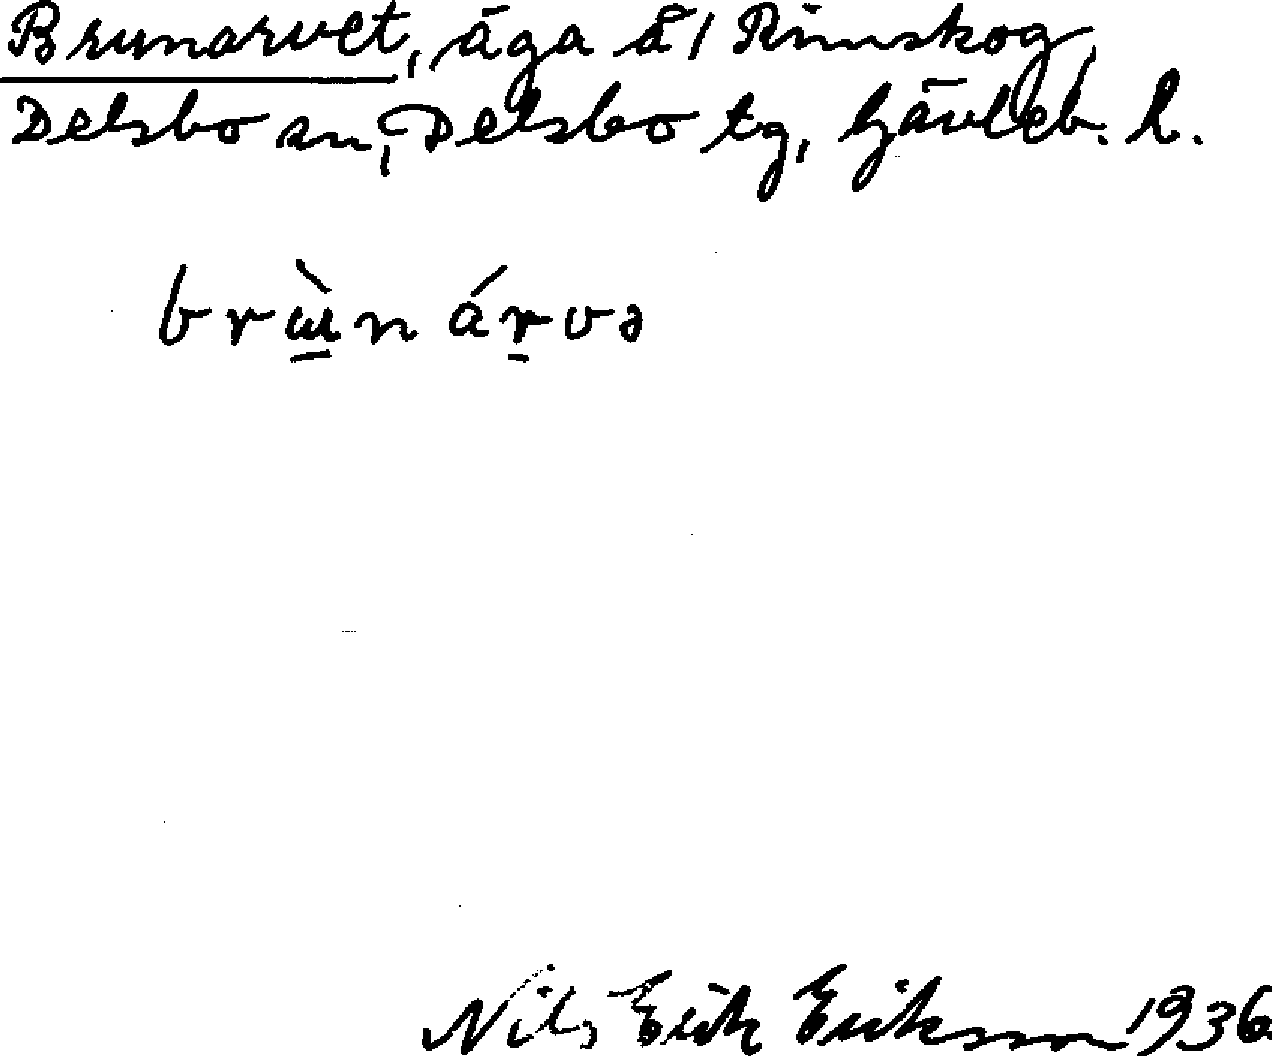 Brunarvet, äga å / Rimskog,
Delsbo sn, Delsbo tg, Gävleb. l.
brɯ̀n árvə
Nils Erik Eriksson 1936